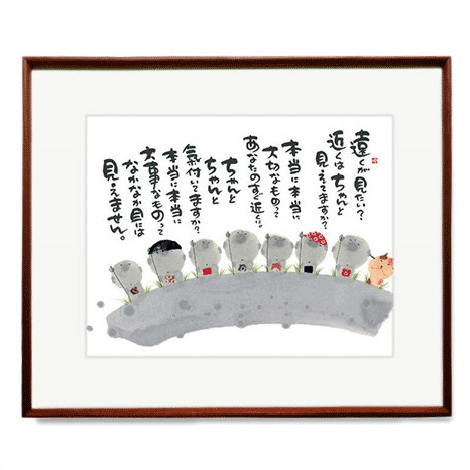 遠くが見たい?
近くはちゃんと
見えてますか?
本当に本当に
大切なものって
あなたのすぐ近くに。
ちゃんと
ちゃんと
氣付いてますか?
本当に本当に
大事なものって
なかなか目には
見えません。